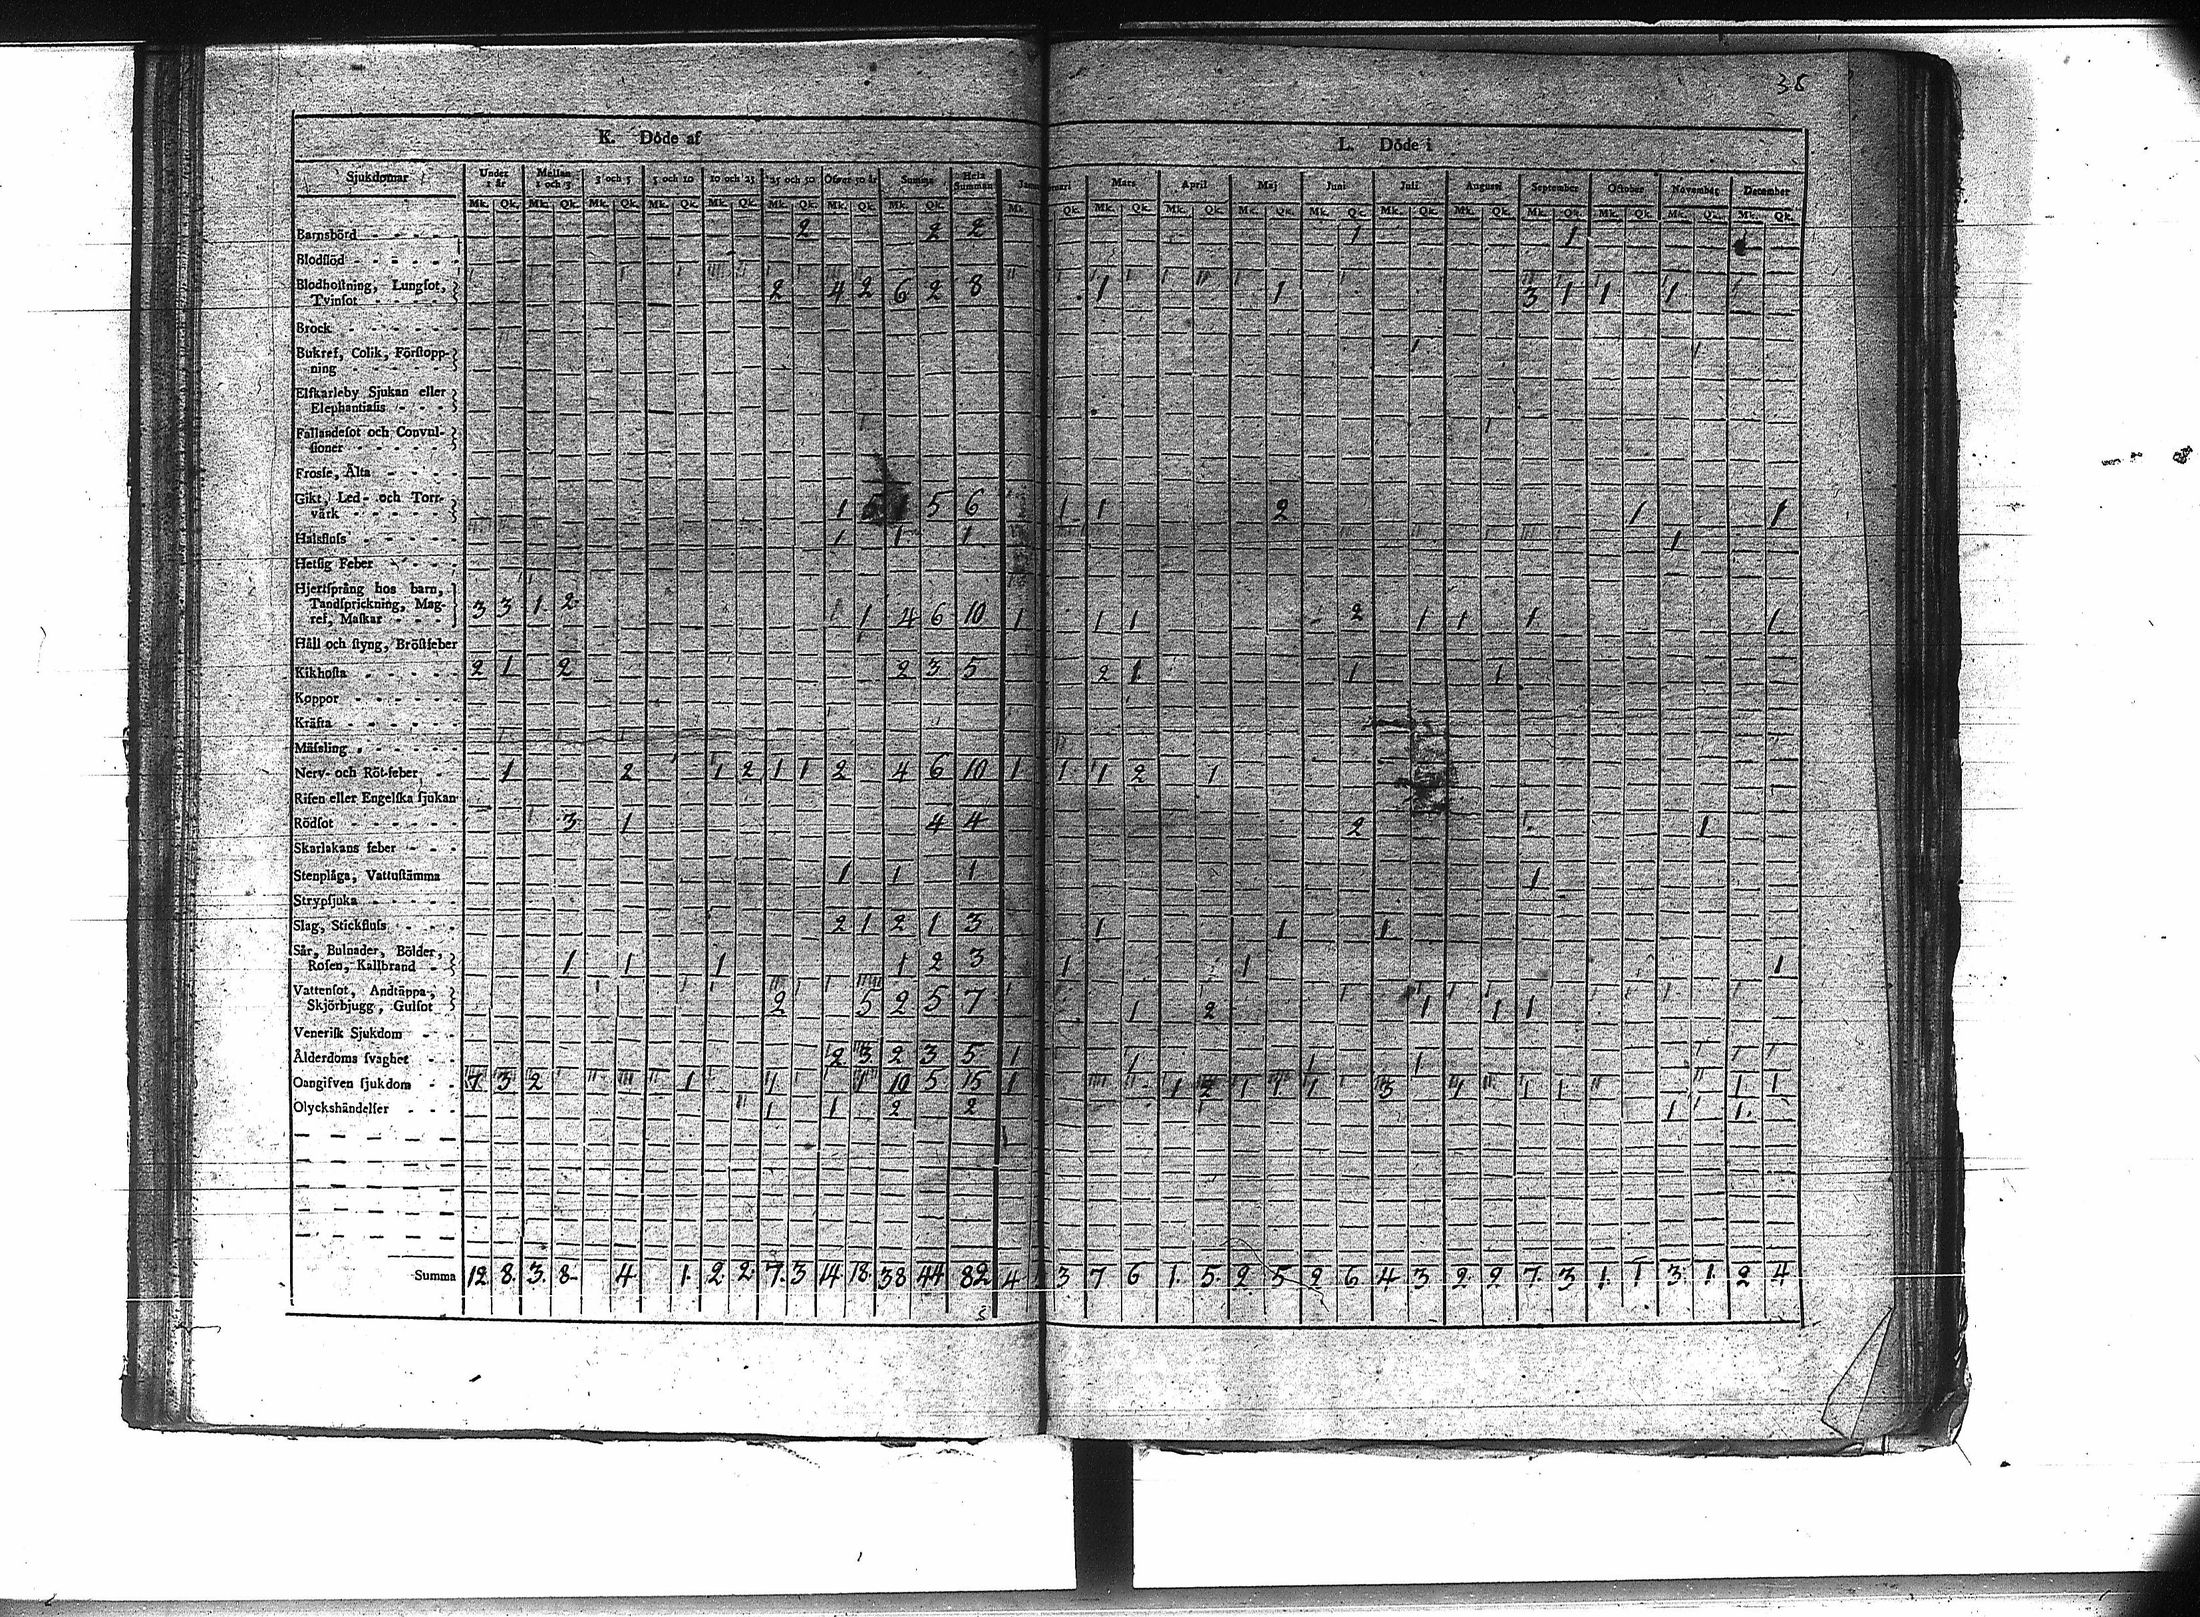 38
K. Döde af
L. Döde i
Sjukdomar Under 1 år Mellan 1 och 3 3 och 5 5 och 10 10 och 25 25 och 50 Öfver 50 år Summa Hela Summan Mars April Maj Juni Juli Augusti September October November December
Mk. Qk. Mk. Qk. Mk. Qk. Mk. Qk. Mk. Qk. Mk. Qk. Mk. Qk. Mk. Qk. Mk. Qk. Mk. Qk. Mk. Qk. Mk. Qk. Mk. Qk. Mk. Qk. Mk. Qk. Mk. Qk. Mk. Qk. Mk. Qk. Mk. Qk.
Barnsbörd 2 2 2 1 1
Blodflöd
Blodhostning, Lungsot,
Tvinsot 2 4 2 6 2 8 1 1 3 1 1 1
Brock
Bukref, Colik, Förstopp-
ning
Elfkarleby Sjukan eller
Elephantiasis
Fallandesot och Convul-
sioner
Frossa, Älta
Gikt, Led- och Torr-
värk 1 5 1 5 6 1 1 2 1 1
Halsfluss 1 1 1 1
Hetsig Feber
Hjertsprång hos barn,
Tandsprickning, Mag-
ref, Maskar 3 3 1 2 1 4 6 10 1 1 1 2 1 1 1 1
Håll och styng, Bröstfeber
Kikhosta 2 1 2 2 3 5 2 1 1 1
Koppor
Kräfta
Mässling
Nerv- och Röt-feber 1 2 1 2 1 1 2 4 6 10 1 1 1 2 1
Risen eller Engelska sjukan
Rödsot 3 1 4 4 2 1
Skarlakans feber
Stenplåga, Vattustämma 1 1 1 1
Strypsjuka
Slag, Stickfluss 2 1 2 1 3 1 1 1
Sår, Bulnader, Bölder,
Rosen, Kallbrand 1 1 1 1 2 3 1 1 1
Vattensot, Andtäppa,
Skjörbjugg, Gulsot 2 5 2 5 7 1 2 1 1 1
Venerisk Sjukdom
Ålderdoms svaghet 2 3 2 3 5 1 1 1 1
Oangifven sjukdom 7 3 2 1 1 1 10 5 15 1 1 2 1 1 1 3 1 1 1 1 1
Olyckshändelser 1 1 2 2 1 1
Summa 12 8 3 8 4 1 2 2 7 3 14 18 38 44 82 4 3 7 6 1 5 2 5 2 6 4 3 2 2 7 3 1 1 3 1 2 4